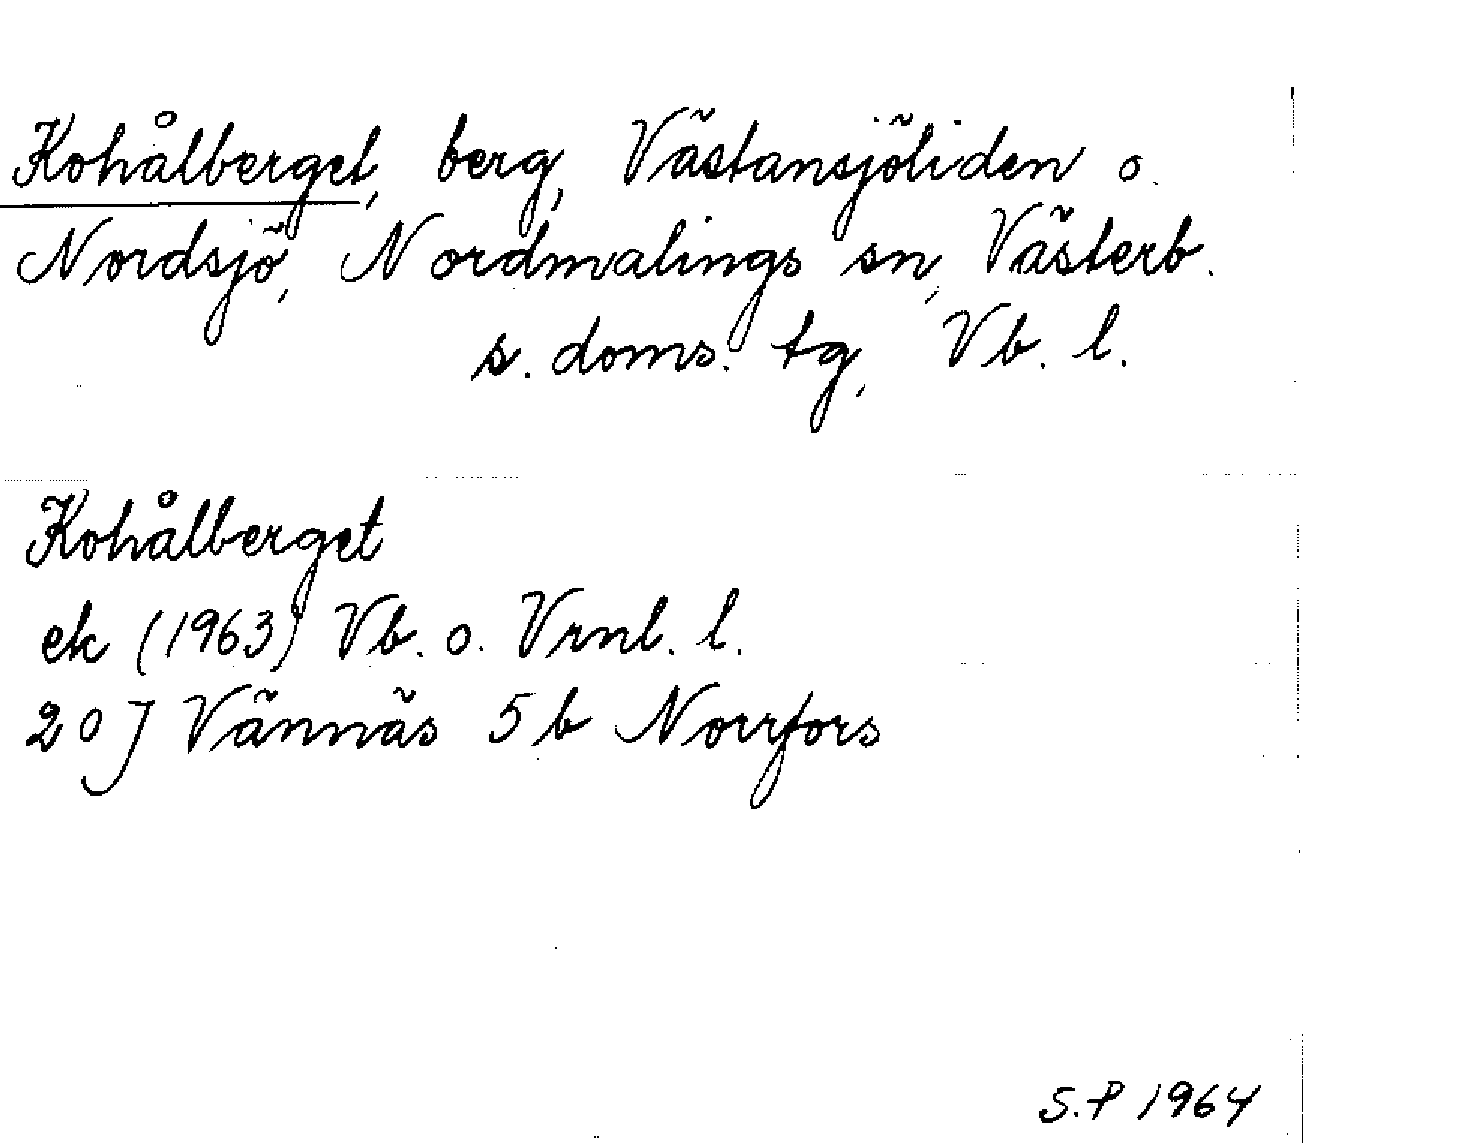 Kohålberget, berg, Västansjöliden o.
Nordsjö, Nordmalings sn, Västerb.
s. doms. tg, Vb. l.
Kohålberget
ek (1963) Vb. o. Vrnl. l.
20 J Vännäs 5 b Norrfors
S.P 1964